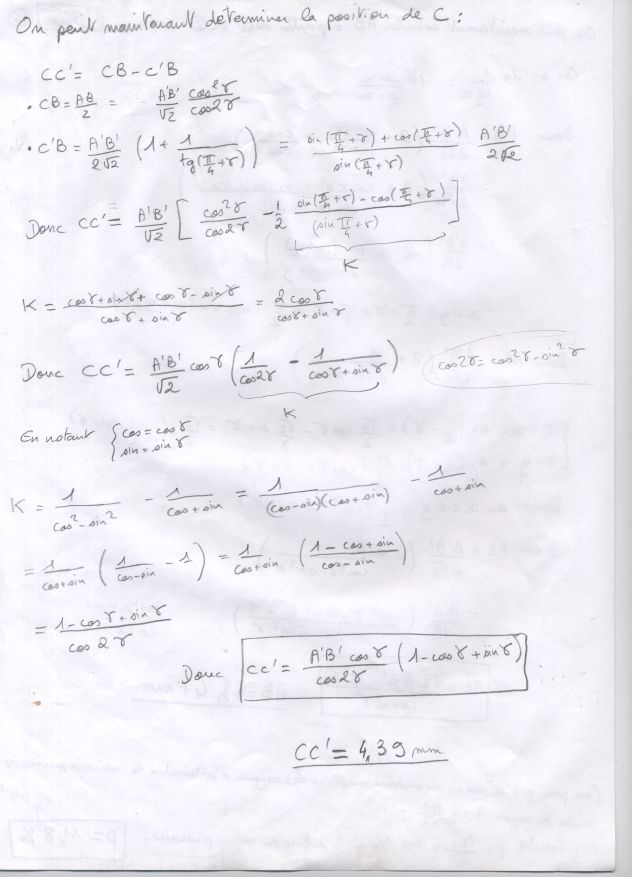 On peut maintenant déterminer la position de C :
CC' = CB - C'B
• CB = AB/2 = A'B'/√2 cos²γ/cos2γ
• C'B = A'B'/2√2 (1 + 1/tg(π/4+γ)) = sin(π/4+γ) + cos(π/4+γ)/sin(π/4+γ) A'B'/2√2
Donc CC' = A'B'/√2 [cos²γ/cos2γ - 1/2 sin(π/4+γ) + cos(π/4+γ)/(sin π/4+γ)]
K
K = cosγ + sinγ + cosγ - sinγ/cosγ + sinγ = 2cosγ/cosγ + sinγ
Donc CC' = A'B'/√2 cosγ (1/cos2γ - 1/cosγ + sinγ) cos2γ = cos²γ - sin²γ
K
En notant { cos = cosγ
sin = sinγ
K = 1/cos² - sin² - 1/cos + sin = 1/(cos-sin)(cos+sin) - 1/cos+sin
= 1/cos+sin (1/cos-sin - 1) = 1/cos+sin (1 - cos + sin/cos - sin)
= 1 - cosγ + sinγ/cos 2γ
Donc CC' = A'B' cosγ/cos2γ (1 - cosγ + sinγ)
CC' = 4,39 mm